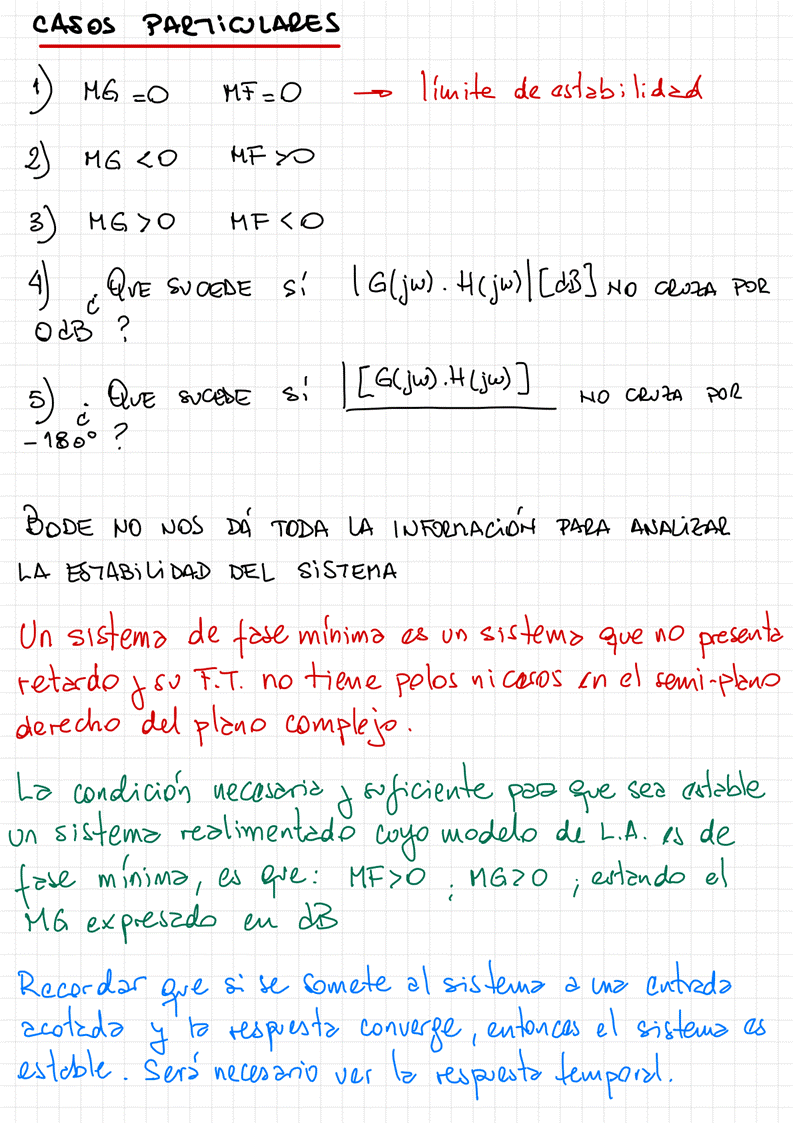 CASOS PARTICULARES
1) MG = 0 MF = 0 → límite de estabilidad
2) MG < 0 MF > 0
3) MG > 0 MF < 0
4) ¿QUE SUCEDE SÍ |G(jw).H(jw)|[dB] NO CRUZA POR
0 dB ?
5) ¿QUE SUCEDE SÍ |[G(jw).H(jw)] NO CRUZA POR
-180° ?
BODE NO NOS DÁ TODA LA INFORMACIÓN PARA ANALIZAR
LA ESTABILIDAD DEL SISTEMA
Un sistema de fase mínima es un sistema que no presenta
retardo y su F.T. no tiene polos ni ceros en el semi-plano
derecho del plano complejo.
La condición necesaria y suficiente para que sea estable
un sistema realimentado cuyo modelo de L.A. es de
fase mínima, es que: MF>0 ; MG>0 ; estando el
MG expresado en dB
Recordar que si se somete al sistema a una entrada
acotada y la respuesta converge, entonces el sistema es
estable. Será necesario ver la respuesta temporal.